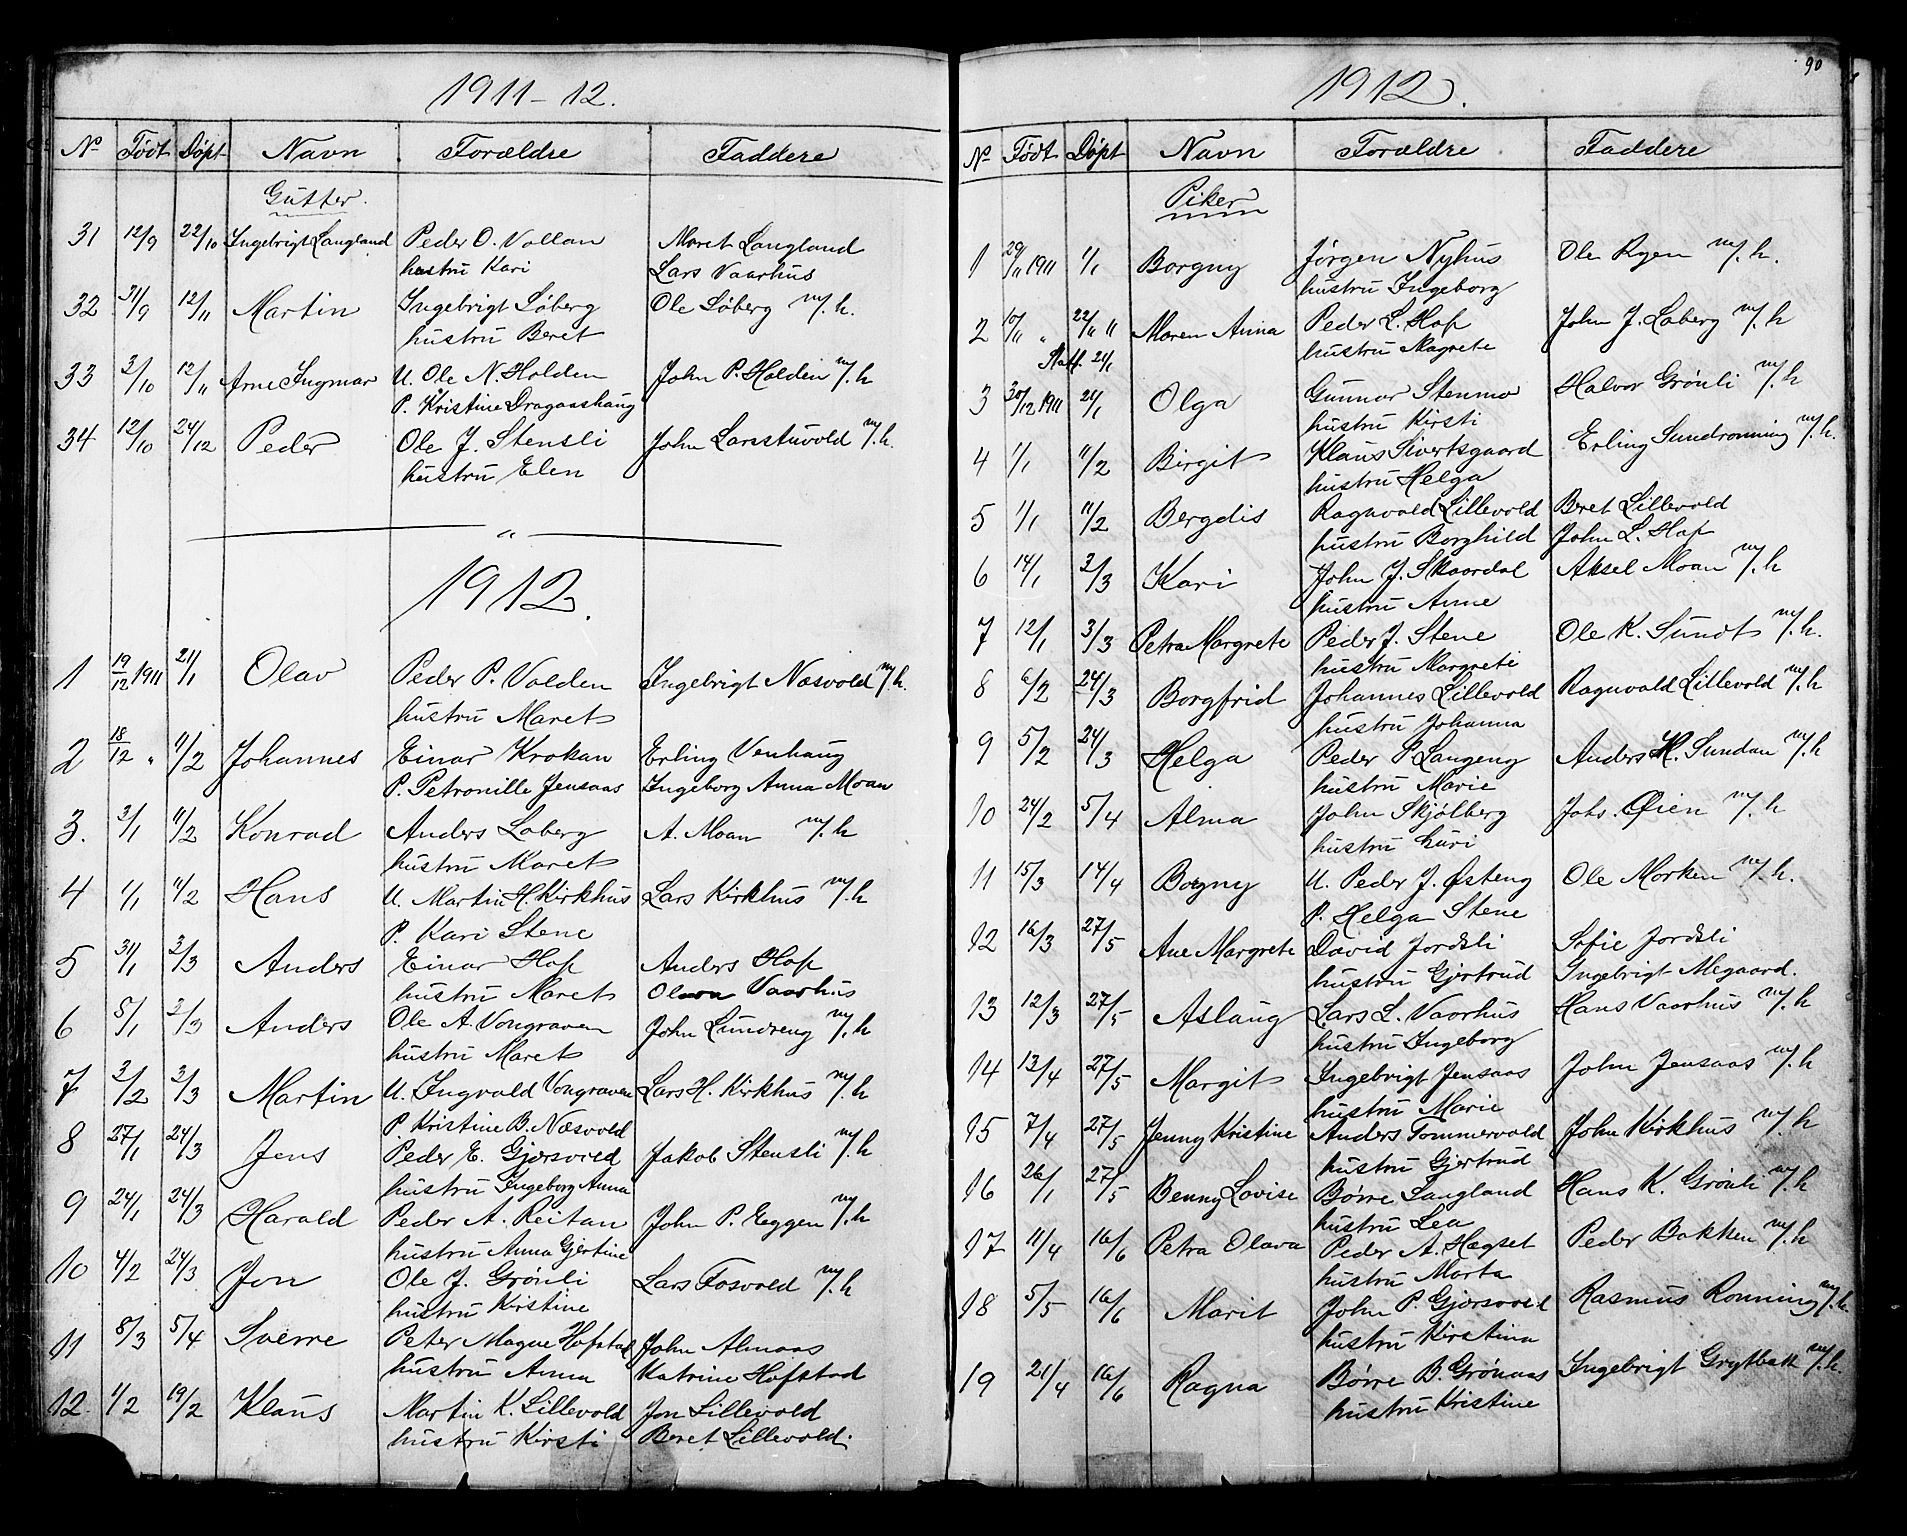 1911-12.
No Født Døpt Navn Forældre Faddere
Gutter.
31 12/9 22/10 Ingebrigt Langland Peder O. Vollan Maret Langland
hustru Kari Lars Vaarhus
32 31/9 12/11 Martin Ingebrigt Løberg Ole Løberg m/. h.
hustru Beret
33 2/10 12/11 Arne Ingmar U. Ole N. Holden John P. Holden m/. h
P. Kristine Dragasshaug
34 12/10 24/12 Peder Ole J. Stensli John Larsstuvold m/. h.
hustru Elen
"
1912.
1 19/12 1911 21/1 Olav Peder P. Volden Ingebrigt Næsvold m/. h.
hustru Maret
2 18/12 " 11/2 Johannes Einar Krokan Erling Venhaug
P. Petronille Jensaas Ingeborg Anna Moan
3. 2/1 11/2 Konrad Anders Loberg A. Moan m/. h
hustru Maret
4 1/1 11/2 Hans U. Martin H. Kirkhus Lars Kirkhus m/. h
P. Kari Stene
5 31/1 3/3 Anders Einar Hof Anders Hof
hustru Maret Vaarhus
6 5/1 3/3 Anders Ole A. Vongraven John Lundreng m/. h
hustru Maret
7 3/2 3/3 Martin U. Ingvald Vongraven Lars H. Kirkhus m/. h
P. Kristine B. Næsvold
8 27/1 24/3 Jens Peder E. Gjersvold Jakob Stensli m/. h
hustru Ingeborg Anna
9 24/1 24/3 Harald Peder A. Reitan John P. Eggen m/. h
hustru Anna Gjertine
10 4/2 24/3 Jon Ole J. Grønli Lars Fosvold m/. h
hustru Kirstine
11 8/3 5/4 Sverre Peter Magne Hofstad John Almaas
hustru Anna Katrine Hofstad
12. 1/2 19/2 Klaus Martin K. Lillevold Jon Lillevold
hustru Kirsti Beret Lillevold.
90
1912.
No Født Døpt Navn Forældre Faddere
Piker
1 29/11 1911 1/1 Borgny Jørgen Nyhus Ole Ryen m/. h.
hustru Ingeborg
2 10/11 " 22/11 11 Maren Anna Peder L. Hof John J. Loberg m/. h
Statf. 21/1 hustru Magrete
3 30/12 1911 21/1 Olga Gunnar Stenmo Halvor Grønli m/. h
hustru Kirsti
4 1/1 11/2 Birgit Klaus Sivertsgaard Erling Sundronning m/. h.
hustru Helga
5 1/1 11/2 Bergdis Ragnvald Lillevold Beret Lillevold
hustru Borghild John L. Hof
6 14/1 3/3 Kari John J. Skaardal Aksel Moan m/. h
hustru Anne
7 12/1 3/3 Petra Margrete Peder J. Stene Ole K. Sundt m/. h.
hustru Margrete
8 6/2 24/3 Borgfrid Johannes Lillevold Ragnvald Lillevold m/. h
hustru Johanna
9 5/2 24/3 Helga Peder P. Langeng Anders H. Sundan m/. h
hustru Marie
10 24/2 5/4 Alma John Skjølberg Johs. Øien m/. h
hustru Guri
11 15/3 14/4 Bogny U. Peder J. Østeng Ole Morken m/. h.
P. Helga Stene
12 16/3 27/5 Ane Margrete David Jordsli Sofie Jordsli
hustru Gjertrud Ingebrigt Megaard.
13 12/3 27/5 Aslaug Lars L. Vaarhus Hans Vaarhus m/. h
hustru Ingeborg
14 13/4 27/5 Margit Ingebrigt Jensaas John Jensaas m/. h
hustru Marie
15 7/4 27/5 Jenny Kristine Anders Tommervold John Kirkhus m/. h
hustru Gjertrud
16 26/1 27/5 Benny Lovise Børre Langland Hans K. Grønli m/. h
hustru Lea
17 11/4 16/6 Petra Olava Peder A. Hægset Peder Bakken m/. h
hustru Marta
18 5/5 16/6 Marit John P. Gjersvold Rasmus Ronning m/. h.
hustru Kirstina
19 21/4 16/6 Ragna Børre B. Grønaas Ingebrigt Grytbak m/. h.
hustru Kristine